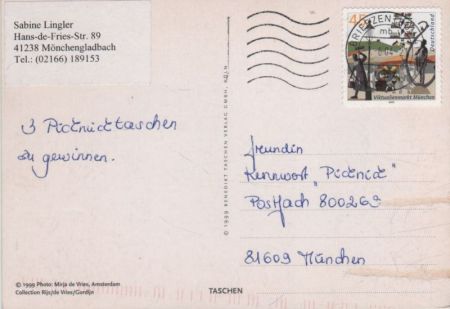 Sabine Lingler
Hans-de-Fries-Str. 89
41238 Mönchengladbach
Tel.: (02166) 189153
Deutschland
Viktualienmarkt München
3 Picknicktaschen
zu gewinnen.
freundin
Kennwort „Picknick"
Postfach 800269
81609 München
© 1999 BENEDIKT TASCHEN VERLAG GMBH, KÖLN
© 1999 Photo: Mirja de Vries, Amsterdam
Collection Rijs/de Vries/Gurdijn
TASCHEN